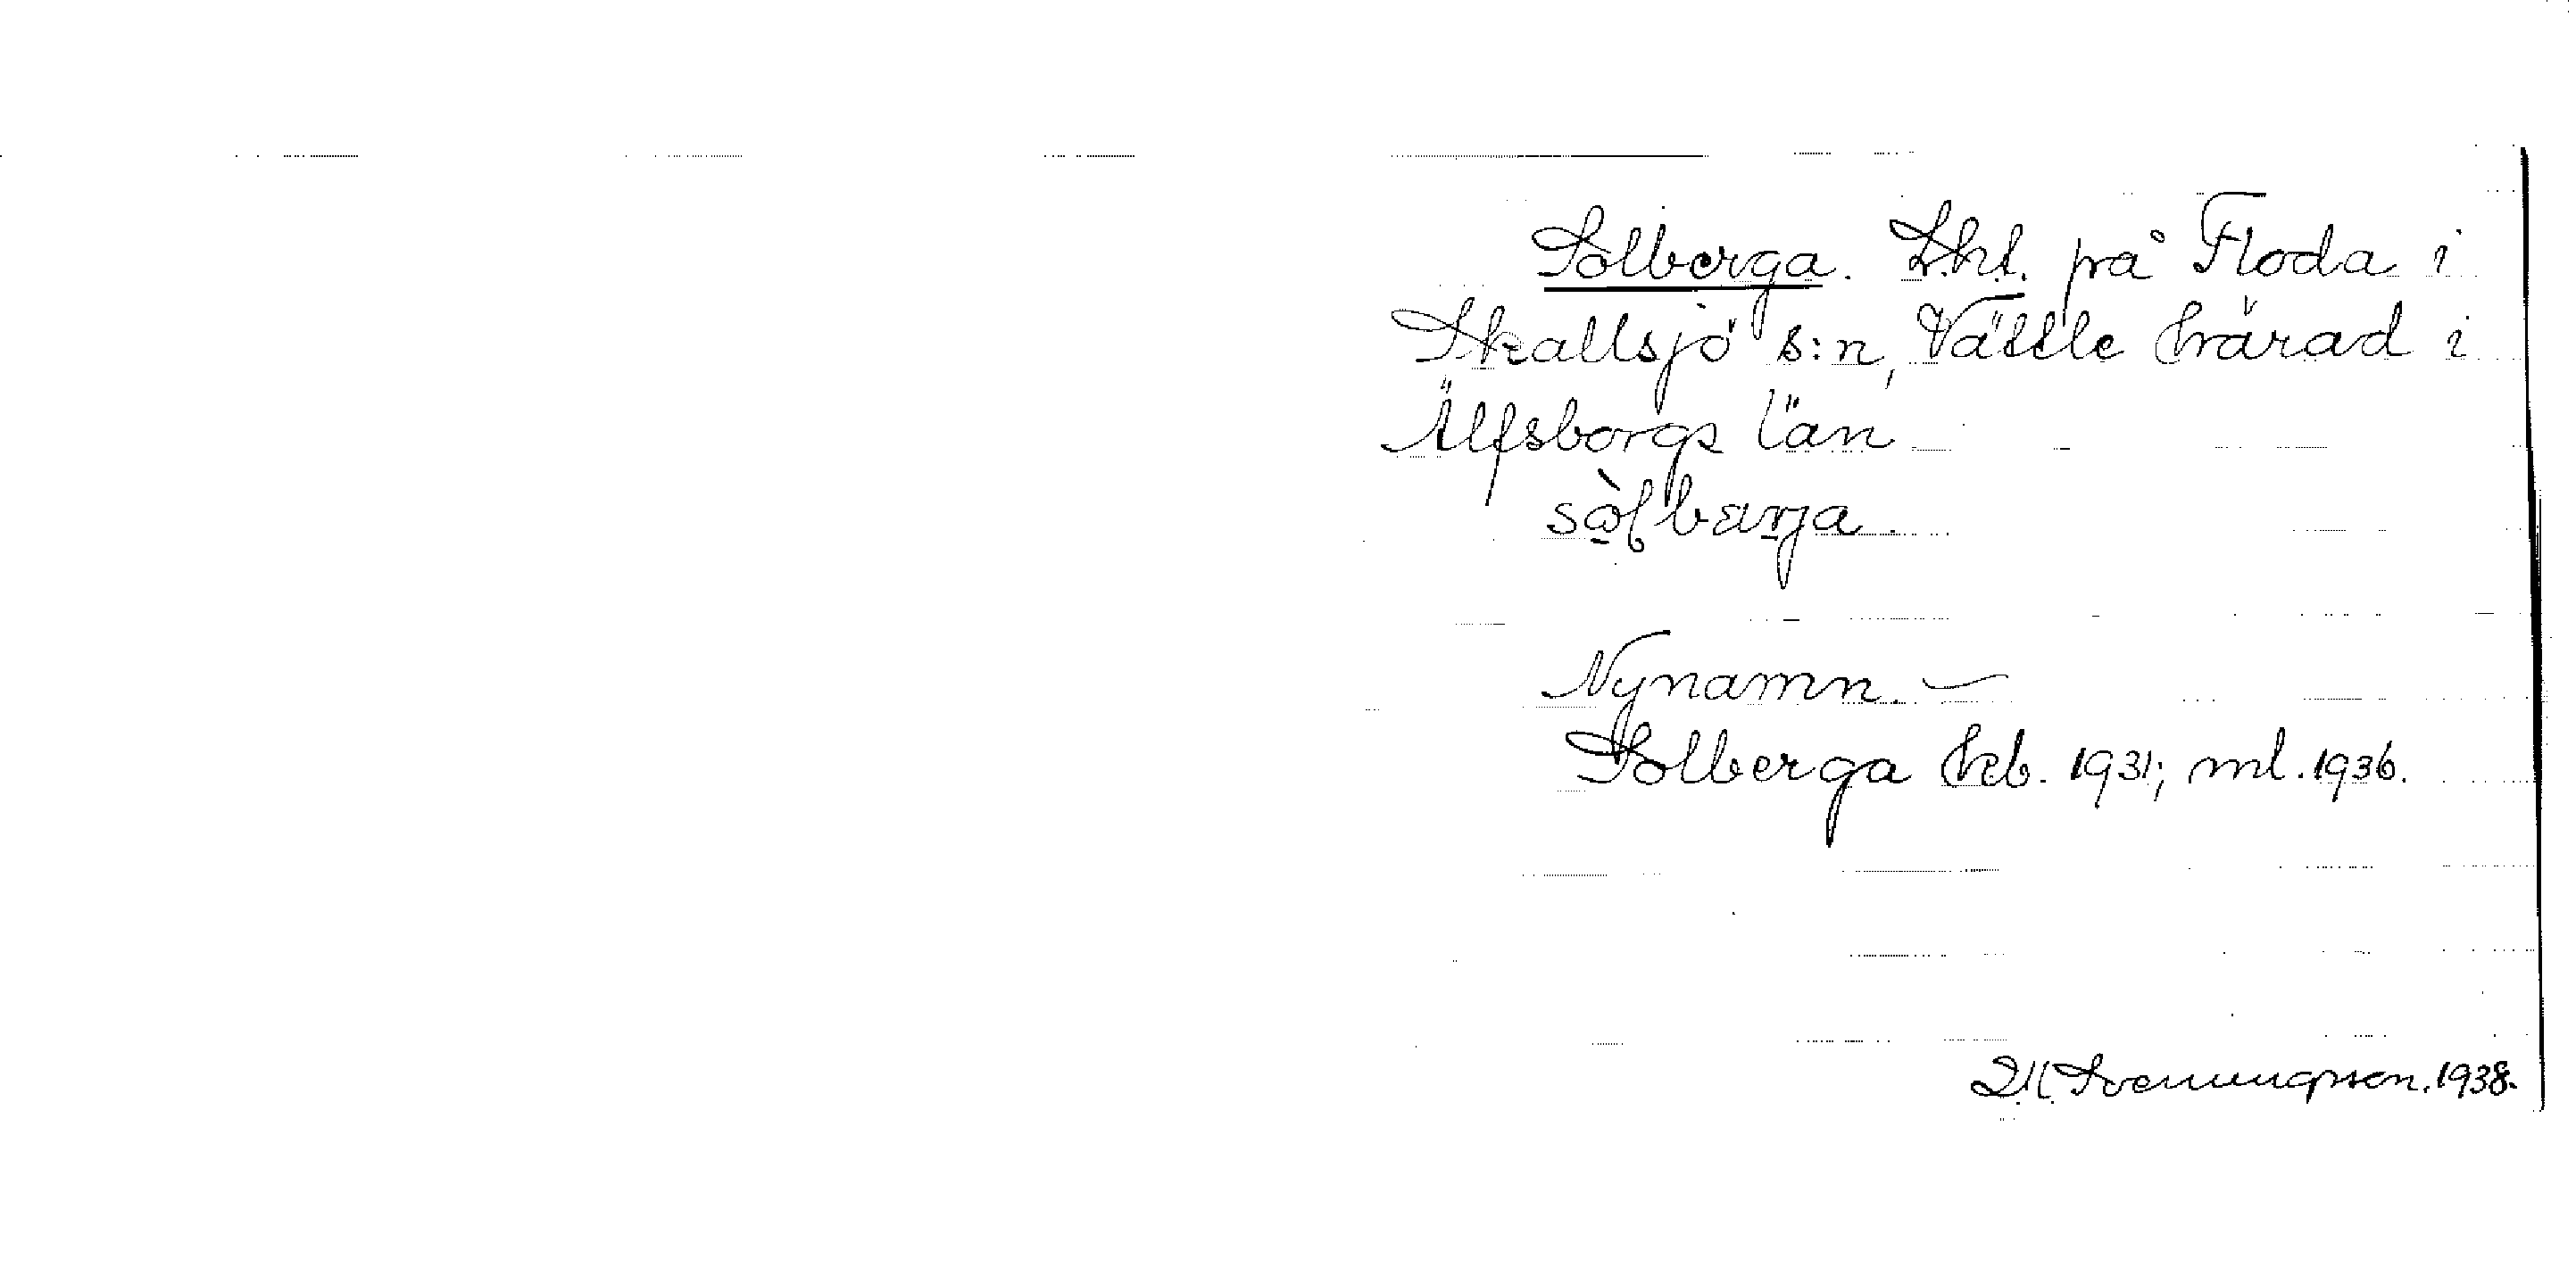 Solberga. Lht. på Floda i
Skallsjö s:n, Vättle härad i
Älfsborgs län
sò̱lbærja.
Nynamn. —
Solberga hb. 1931; ml. 1936.
Svenungsson. 1938.